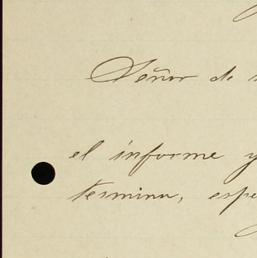 Señor de
el informe y
termina, espe